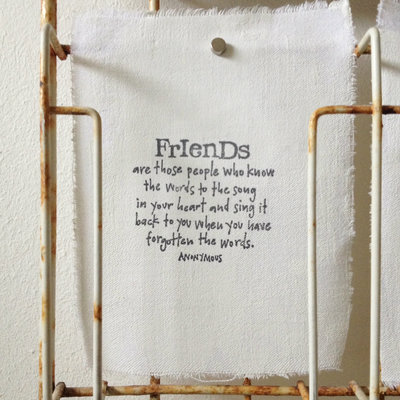 FrIenDs
are those people who know
the words to the song
in your heart and sing it
back to you when you have
forgotten the words.
ANONYMOUS